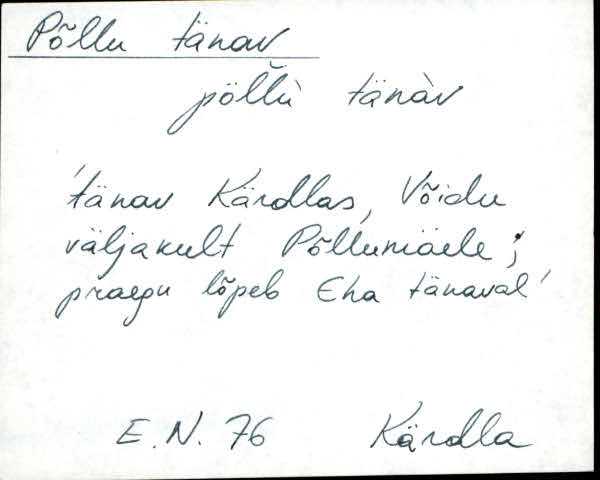 Põllu tänav
pöl̆lù tänàv
'tänav Kärdlas, Võidu
väljakult Põllumäele;
praegu lõpeb Eha tänaval'
E. N. 76 Kärdla